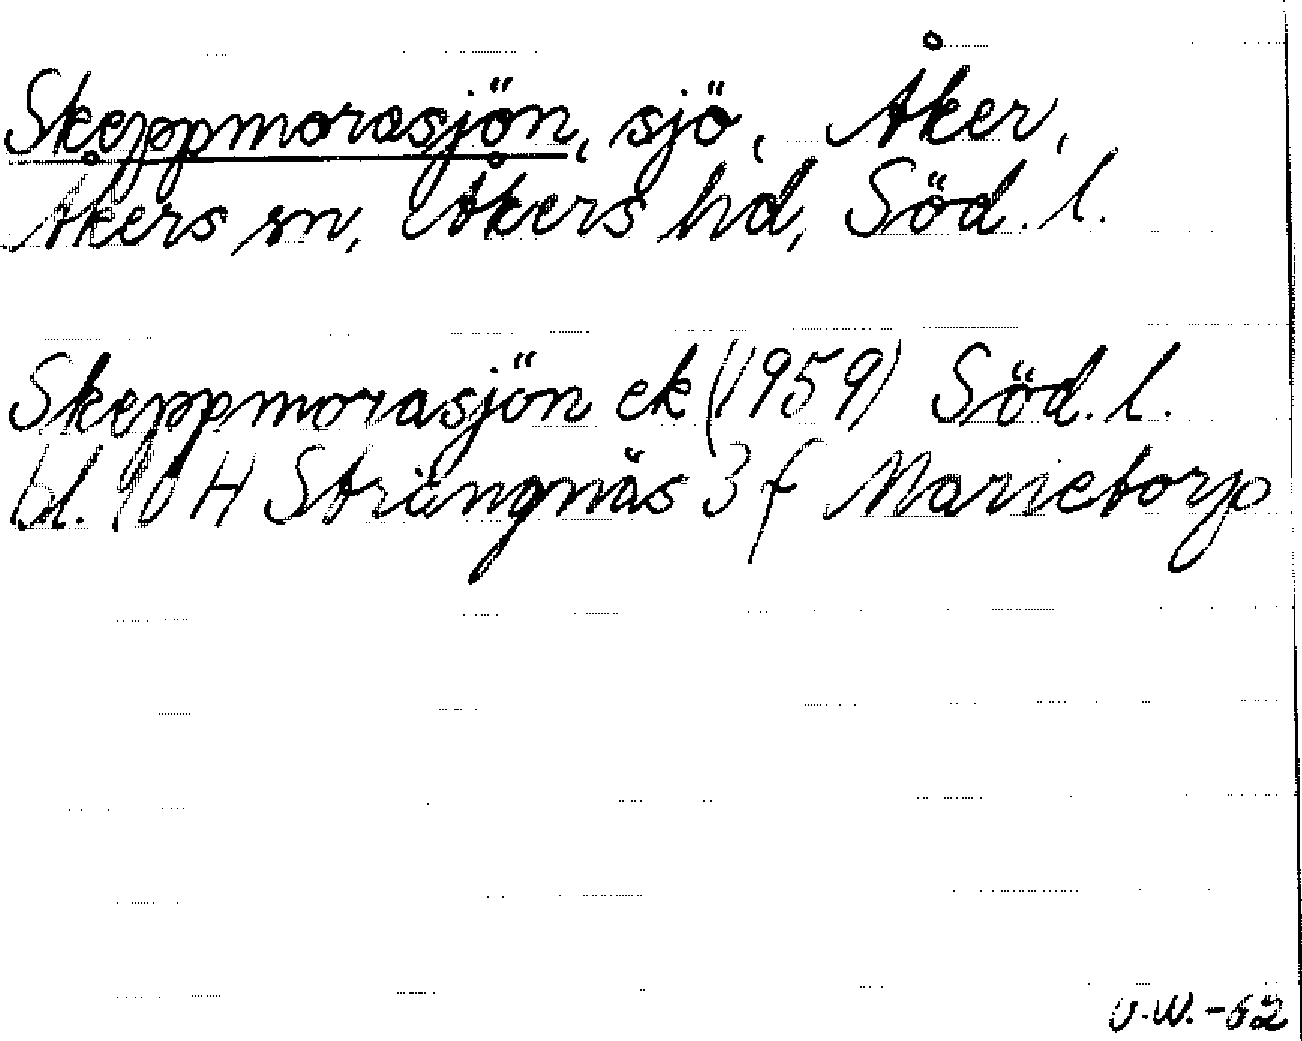 Skeppmorasjön, sjö, Åker,
Åkers sn, Åkers hd, Söd. l.
Skeppmorasjön ek (1959) Söd. l.
bl. 10 H Strängnäs 3 f Marietorp
U.W. -62